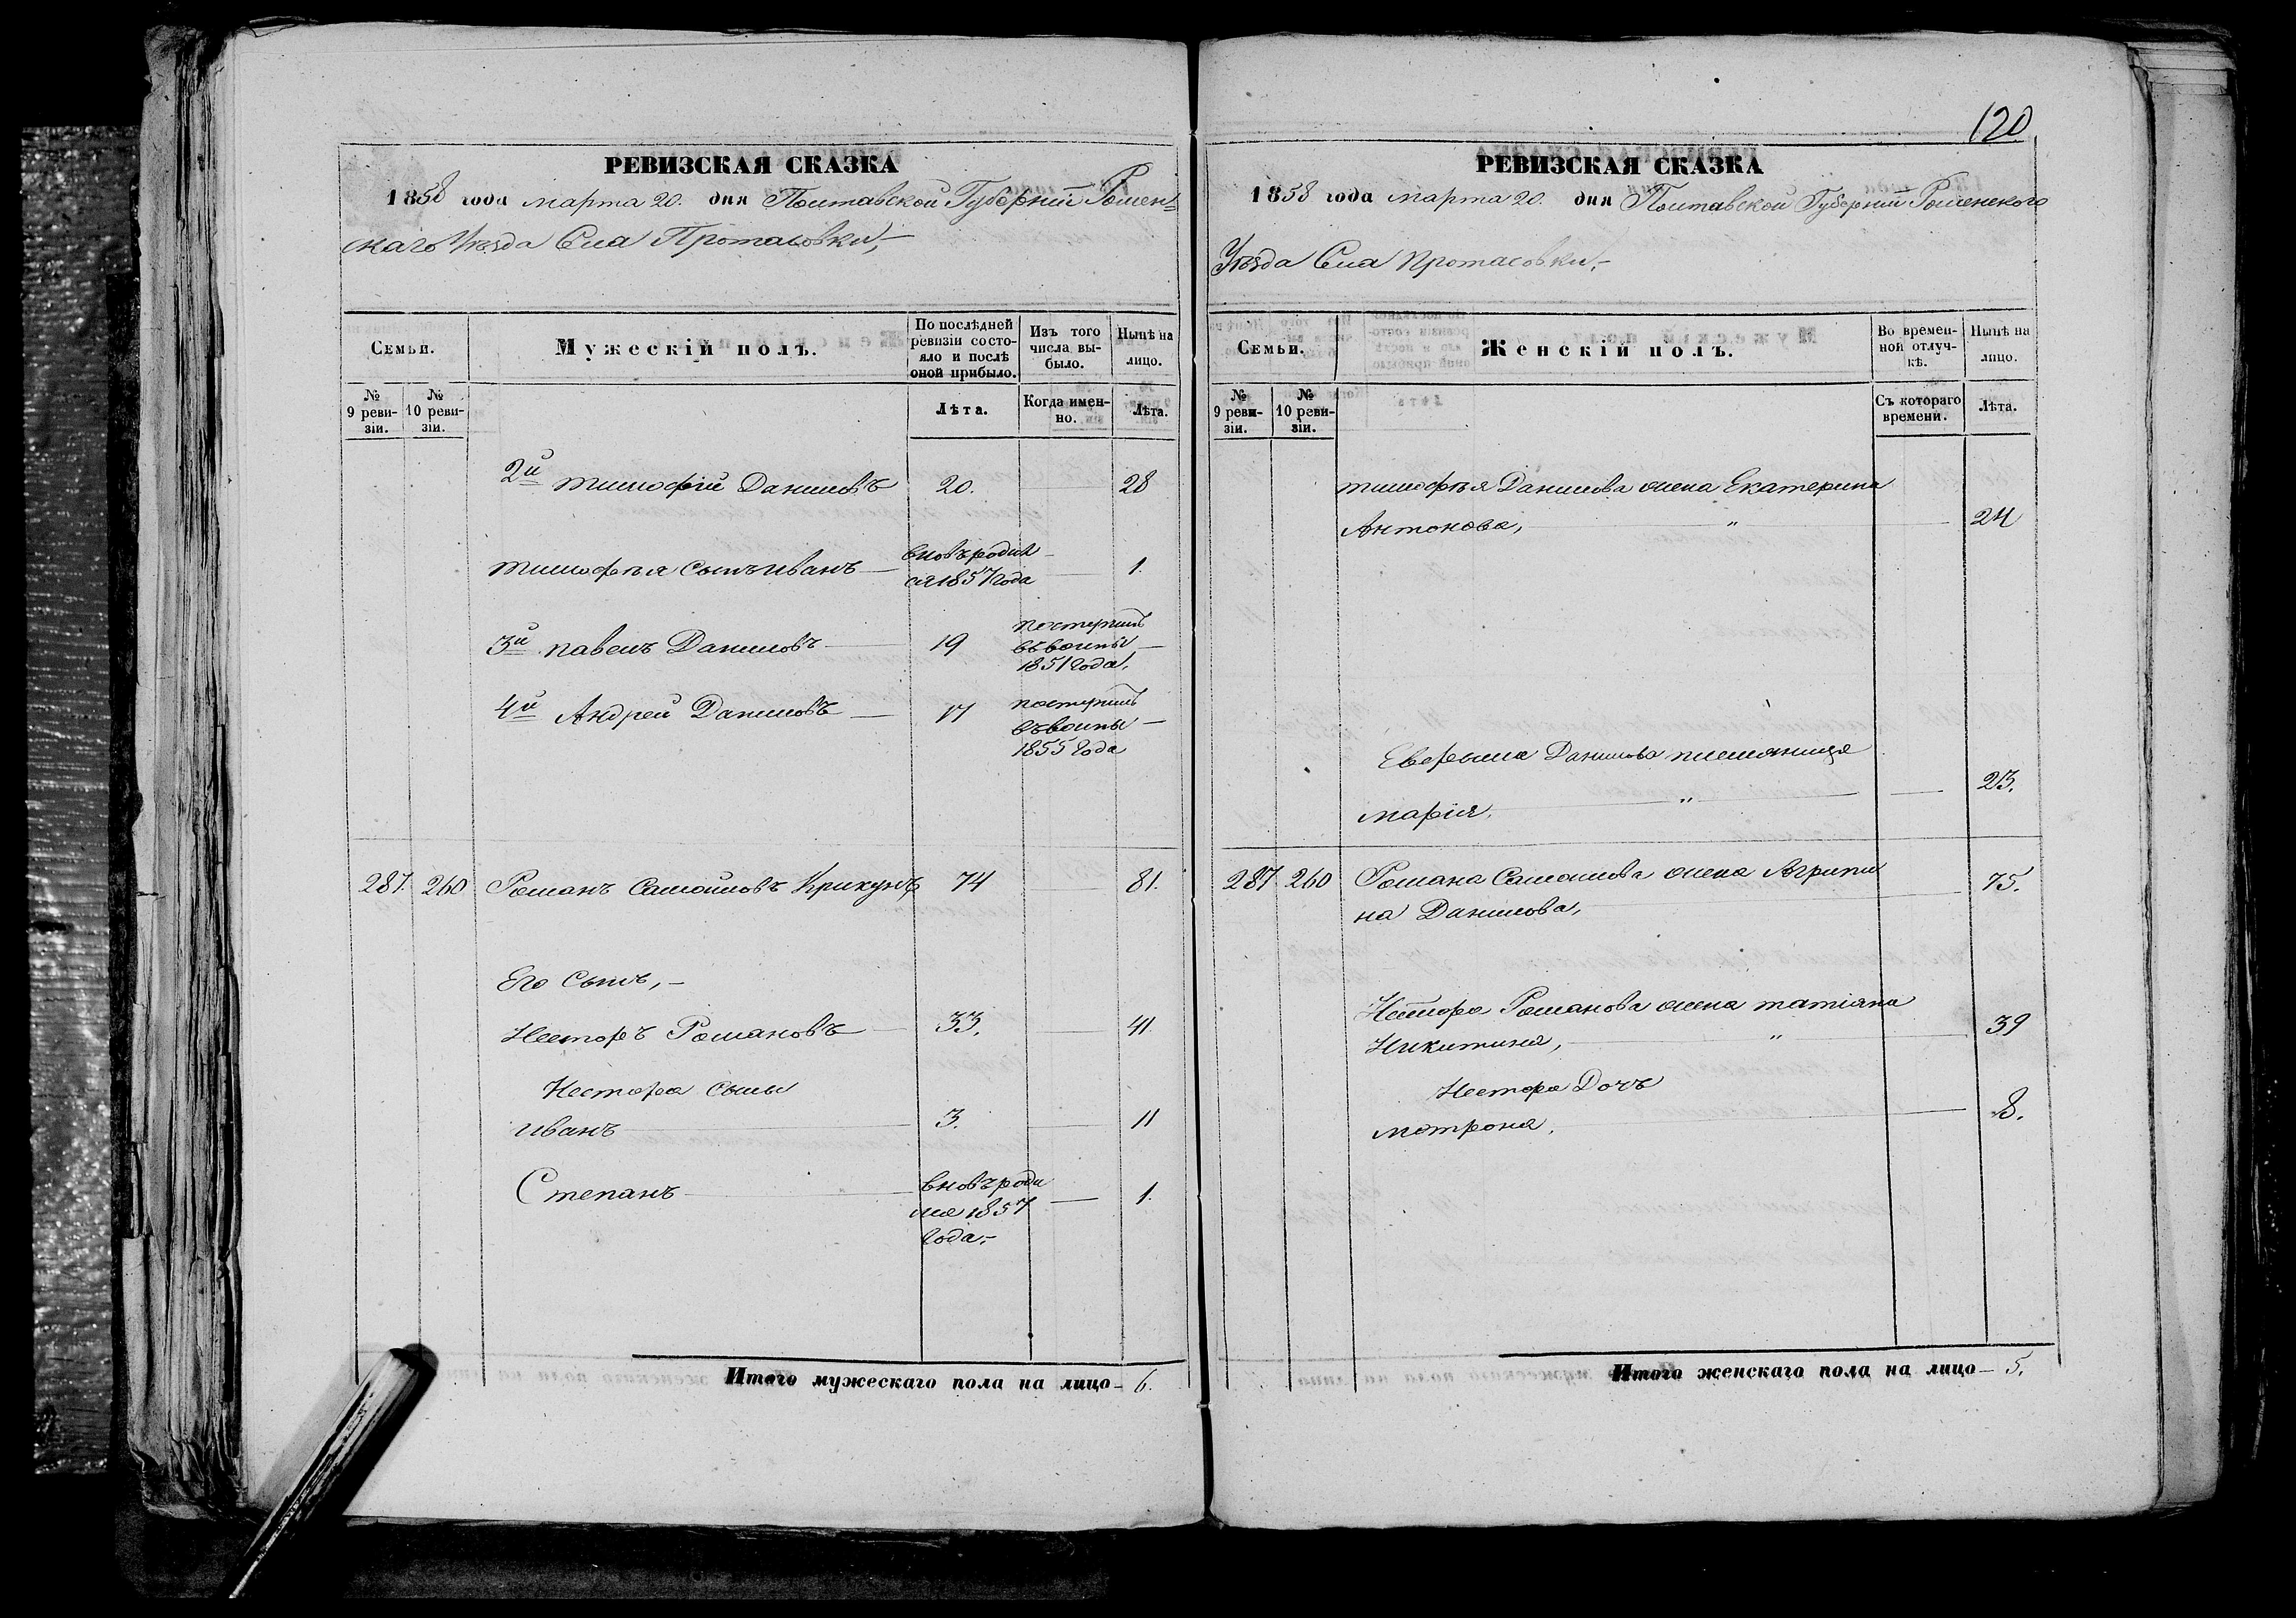 РЕВИЗСКАЯ СКАЗКА
1858 года марта 20. дня Полтавской Губерніи Ромен=
скаго Уѣзда Села Протасовки,—
Семьи.
Мужескій полъ.
По послѣдней ревизіи состояло и послѣ оной прибыло.
Изъ того числа выбыло.
Нынѣ на лицо.
№ 9 ревизіи.
№ 10 ревизіи.
Лѣта.
Когда именно.
Лѣта.
2й Тимофій Даниловъ 20. 28
Тимофѣя Сынъ Иванъ — вновь родил
ся 1857 года — 1.
3й Павелъ Даниловъ — 19
въ воины —
1851 года.
4й Андрей Даниловъ — 17
въ воины —
1855 года
287. 260 Романъ Самойловъ Крикунъ 74 81.
Его Сынъ,—
Несторъ Романовъ — 33. — 41.
Нестора Сыны
Иванъ — 3. — 11
Степанъ — вновь роди
лся 1857 — 1.
года.—
Итого мужескаго пола на лицо — 6.
120
РЕВИЗСКАЯ СКАЗКА
1858 года марта 20. дня Полтавской Губерніи Роменского
Уѣзда Села Протасовки.—
Семьи.
Женскій полъ.
Во временной отлучкѣ.
Нынѣ на лицо.
№ 9 ревизіи.
№ 10 ревизіи.
Съ котораго времени.
Лѣта.
Тимофѣя Данилова жена Екатерина
Антонова, — " — 24
Данилова племяница
Марія. — " — 23.
287 260 Романа Самойлова жена Агрипи
на Данилова, — 75.
Нестора Романова жена Татіяна
Никитина, — " — 39
Нестора Дочь
Мотрона. — 8.
Итого женскаго пола на лицо — 5.